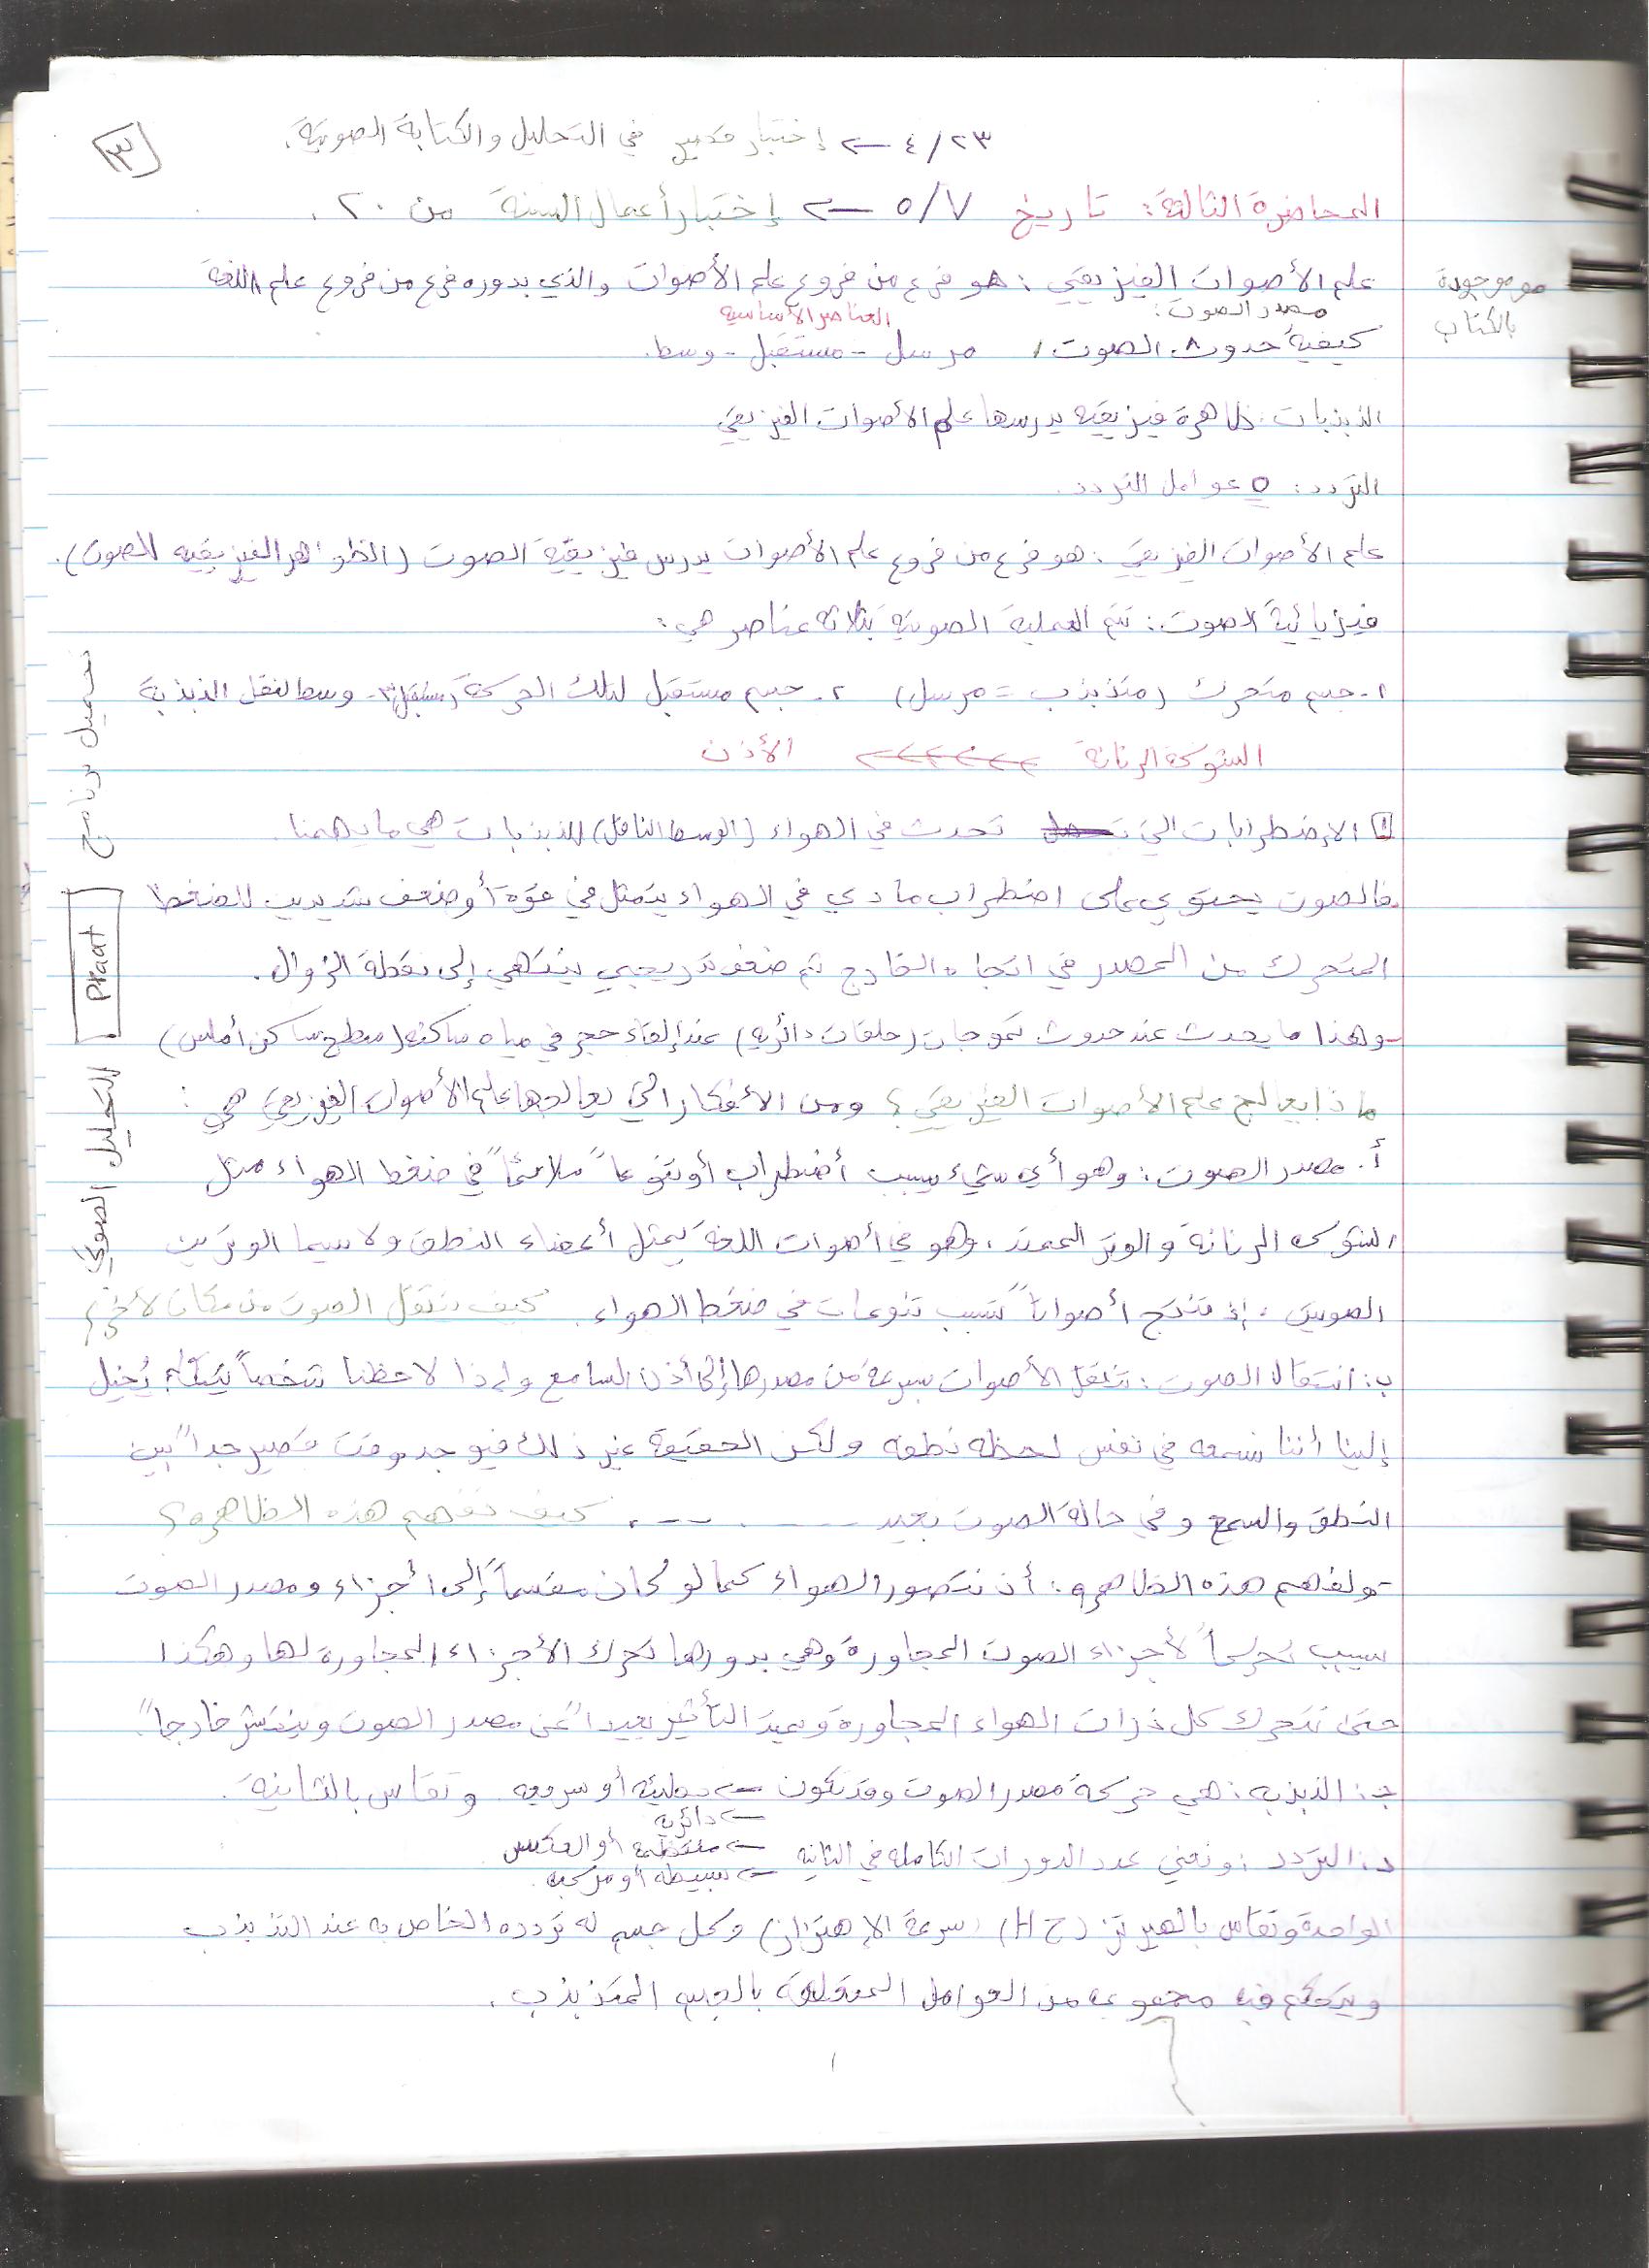 ٣
٤/٢٣ ← إختبار قصير في التحليل والكتابة الصوتية.
المحاضرة الثالثة: تاريخ ٥/٧ ← إختبار أعمال السنة من ٢٠.
مو موجودة بالكتاب
علم الأصوات الفيزيقي: هو فرع من فروع علم الأصوات والذي بدوره فرع من فروع علم اللغة
مصدر الصوت: العناصر الأساسية
كيفية حدوث الصوت / مرسل - مستقبل - وسط.
الذبذبات: ظاهرة فيزيقية يدرسها علم الأصوات الفيزيقي
التردد: ٥ عوامل التردد.
علم الأصوات الفيزيقي: هو فرع من فروع علم الأصوات يدرس فيزيقية الصوت (الظواهر الفيزيقيه للصوت).
فيزيائية الصوت: تتم العملية الصوتية بثلاثة عناصر هي:
١- جسم متحرك (متذبذب = مرسل) ٢- جسم مستقبل لتلك الحركة (مستقبل) ٣- وسط لنقل الذبذبة
الشوكة الرنانة الأذن
الإضطرابات التي تحدث في الهواء (الوسط الناقل) للذبذبات هي ما يهمنا.
فالصوت يحتوي على اضطراب مادي في الهواء يتمثل في قوة أو ضعف شديدين للضغط
المتحرك من المصدر في اتجاه الخارج ثم ضعف تدريجي ينتهي إلى نقطة الزوال.
- وهذا ما يحدث عند حدوث تموجات (حلقات دائرية) عند إلقاء حجر في مياه ساكنه (سطح ساكن أملس)
ماذا يعالج علم الأصوات الفيزيقي؟ ومن الأفكار التي يعالجها علم الأصوات الفيزيقي هي:
أ. مصدر الصوت: وهو أي شيء يسبب أضطراب أو تنوعاً ملائماً في ضغط الهواء مثل
الشوكه الرنانة والوتر الممتد، وهو في أصوات اللغة يمثل أعضاء النطق ولا سيما الوترين
الصوتين، إذ تنتج أصواتاً تسبب تنوعات في ضغط الهواء. كيف ينتقل الصوت من مكان لآخر؟
ب: انتقال الصوت: تنتقل الأصوات بسرعة من مصدرها إلى أذن السامع وإذا لاحظنا شخصاً يتكلم يُخيل
إلينا أننا نسمعه في نفس لحظه نطقه ولكن الحقيقة غير ذلك فيوجد وقت قصير جداً بين
النطق والسمع وفي حالة الصوت بعيد ....... كيف نفهم هذه الظاهره؟
- ولفهم هذه الظاهره: أن نتصور الهواء كما لو كان مقسماً إلى أجزاء ومصدر الصوت
سبب تحركاً لأجزاء الصوت المجاورة وهي بدورها تحرك الأجزاء المجاورة لها وهكذا
حتى تتحرك كل ذرات الهواء المجاورة ويمتد التأثير بعيداً عن مصدر الصوت وينتشر خارجاً.
جـ: الذبذبه: هي حركة مصدر الصوت وقد تكون ← بطيئه أو سريعه. وتقاس بالثانية.
← دائريه
← منتظمة أو العكس
← بسيطه أو مركبه.
د: التردد: ونعني عدد الدورات الكامله في الثانيه
الواحدة وتقاس بالهيرتز (Hz) (سرعة الإهتزاز) وكل جسم له تردده الخاص به عند التذبذب
ويتحكم فيه مجموعه من العوامل المتعلقة بالجسم المتذبذب.
١
تحميل برنامج Praat للتحليل الصوتي